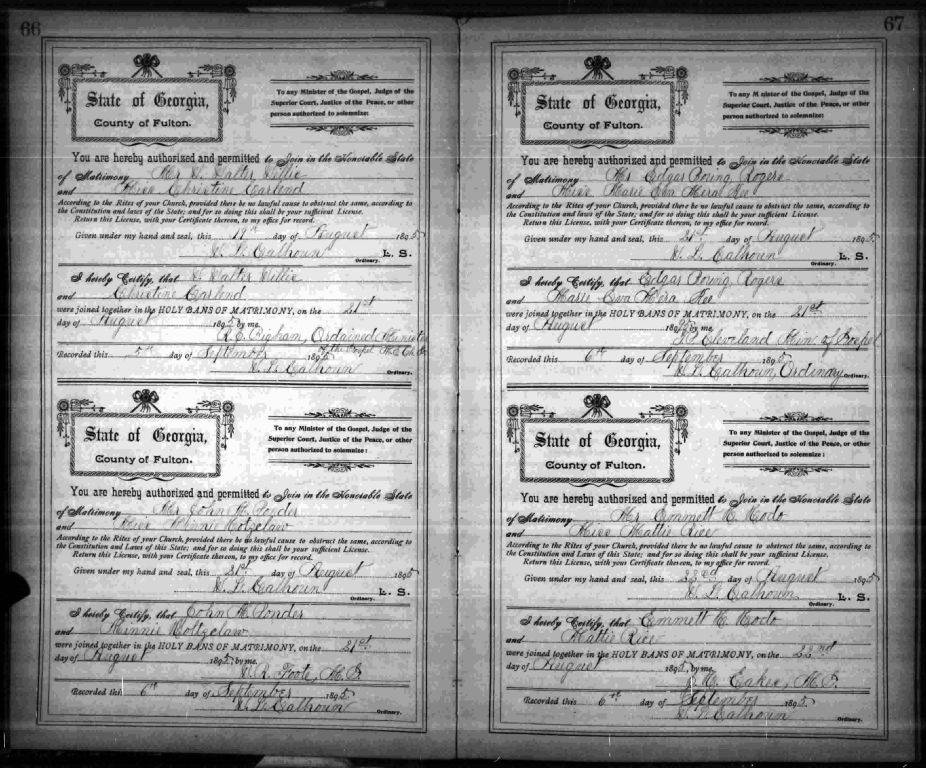 66
State of Georgia,
County of Fulton.
To any Minister of the Gospel, Judge of the
Superior Court, Justice of the Peace, or other
person authorized to solemnize:
You are hereby authorized and permitted to Join in the Honorable State
of Matrimony Mr Walter
and Miss Christine
According to the Rites of your Church, provided there be no lawful cause to obstruct the same, according to
the Constitution and laws of the State; and for so doing this shall be your sufficient License.
Return this License, with your Certificate thereon, to my office for record.
Given under my hand and seal, this day of August 1895
W. L. Calhoun L. S.
Ordinary.
I hereby Certify, that Walter
and Christine
were joined together in the HOLY BANS OF MATRIMONY, on the 21st
day of August 1895 by me.
Ordained Minister
Recorded this 5th day of September 1895
W. L. Calhoun
Ordinary.
State of Georgia,
County of Fulton.
To any Minister of the Gospel, Judge of the
Superior Court, Justice of the Peace, or other
person authorized to solemnize:
You are hereby authorized and permitted to Join in the Honorable State
of Matrimony Mr John H.
and Miss Minnie Holtzclaw
According to the Rites of your Church, provided there be no lawful cause to obstruct the same, according to
the Constitution and Laws of this State; and for so doing this shall be your sufficient License.
Return this License, with your Certificate thereon, to my office for record.
Given under my hand and seal, this 21st day of August 1895
W. L. Calhoun L. S.
Ordinary.
I hereby Certify, that John H.
and Minnie Holtzclaw
were joined together in the HOLY BANS OF MATRIMONY, on the 21st
day of August 1895, by me.
W. R. Foote, M. G.
Recorded this 6th day of September 1895
W. L. Calhoun
Ordinary.
67
State of Georgia,
County of Fulton.
To any Minister of the Gospel, Judge of the
Superior Court, Justice of the Peace, or other
person authorized to solemnize:
You are hereby authorized and permitted to Join in the Honorable State
of Matrimony Mr Edgar Rogers
and Miss Marie Eva
According to the Rites of your Church, provided there be no lawful cause to obstruct the same, according to
the Constitution and laws of the State; and for so doing this shall be your sufficient License.
Return this License, with your Certificate thereon, to my office for record.
Given under my hand and seal, this 21st day of August 1895
W. L. Calhoun L. S.
Ordinary.
I hereby Certify, that Edgar Rogers
and Marie Eva
were joined together in the HOLY BANS OF MATRIMONY, on the 21st
day of August 1895 by me.
Cleveland Min. of Gospel
Recorded this 6th day of September 1895
W. L. Calhoun, Ordinary
Ordinary.
State of Georgia,
County of Fulton.
To any Minister of the Gospel, Judge of the
Superior Court, Justice of the Peace, or other
person authorized to solemnize:
You are hereby authorized and permitted to Join in the Honorable State
of Matrimony Mr Emmett
and Miss Mattie Rice
According to the Rites of your Church, provided there be no lawful cause to obstruct the same, according to
the Constitution and Laws of this State; and for so doing this shall be your sufficient License.
Return this License, with your Certificate thereon, to my office for record.
Given under my hand and seal, this 22nd day of August 1895
W. L. Calhoun L. S.
Ordinary.
I hereby Certify, that Emmett
and Mattie Rice
were joined together in the HOLY BANS OF MATRIMONY, on the 22nd
day of August 1895, by me.
M. G.
Recorded this 6th day of September 1895
W. L. Calhoun
Ordinary.